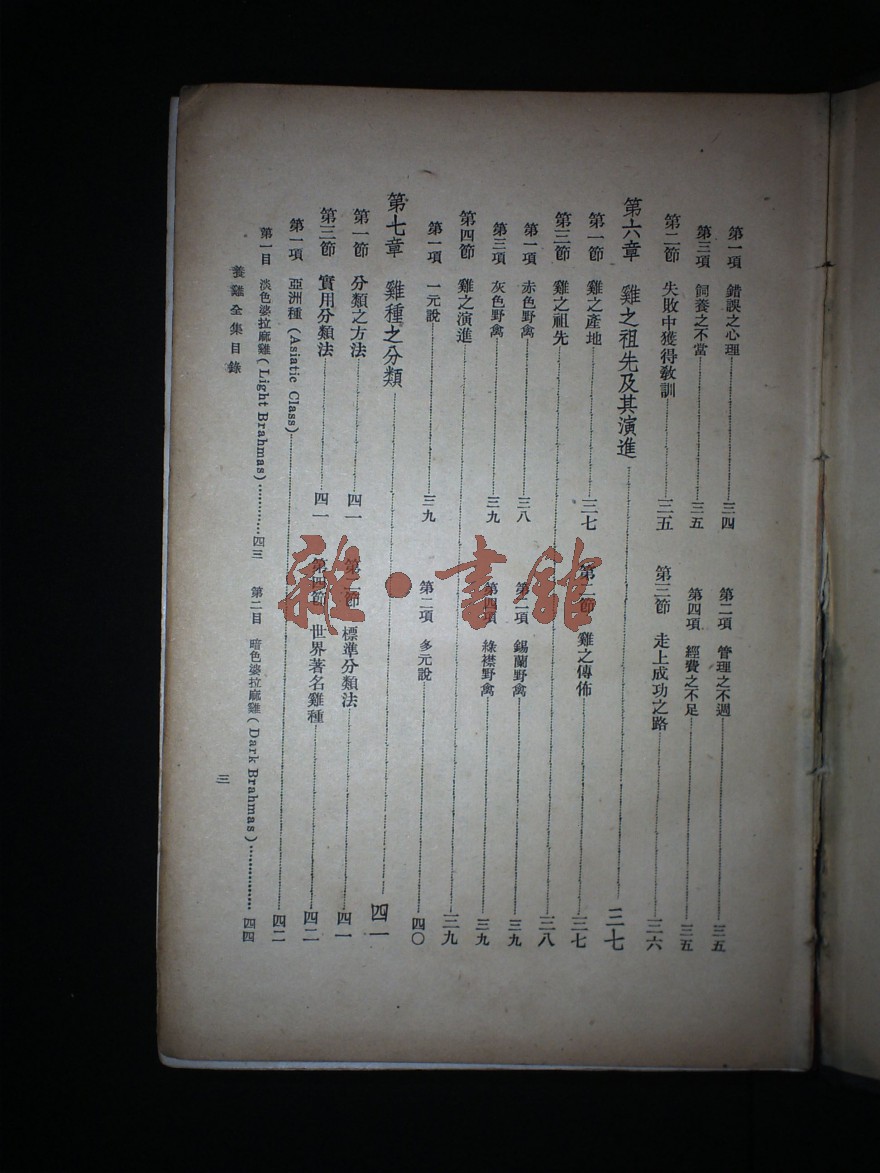 第一項　錯誤之心理………三四　第二項　管理之不週………三五
第三項　飼養之不當………三五　第四項　經費之不足………三五
第二節　失敗中獲得教訓………三五　第三節　走上成功之路………三六
第六章　雞之祖先及其演進………三七
第一節　雞之產地………三七　第二節　雞之傳佈………三七
第三節　雞之祖先………三八
第一項　赤色野禽………三八　第二項　錫蘭野禽………三九
第三項　灰色野禽………三九　第四項　綠襟野禽………三九
第四節　雞之演進………三九
第一項　一元說………三九　第二項　多元說………四〇
第七章　雞種之分類………四一
第一節　分類之方法………四一　第二節　標準分類法………四一
第三節　實用分類法………四一　第四節　世界著名雞種………四二
第一項　亞洲種 (Asiatic Class)………四二
第一目　淡色婆拉麻雞 (Light Brahmas)………四三　第二目　暗色婆拉麻雞 (Dark Brahmas)………四四
養雞全集目錄　三
雜·書館